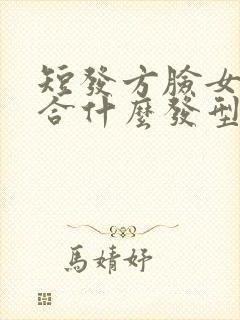 短發方臉女
合什麼發型
馬婧妤